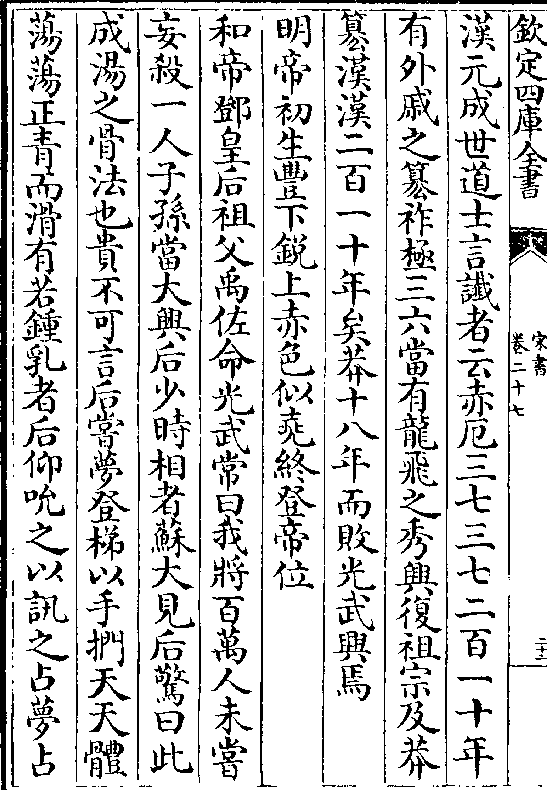 欽定四庫全書
宋書
卷二十七
二十二
漢元成世道士言讖者云赤厄三七三七二百一十年
有外戚之簒祚極三六當有龍飛之秀興復祖宗及莽
簒漢漢二百一十年矣莽十八年而敗光武興焉
明帝初生豐下銳上赤色似堯終登帝位
和帝鄧皇后祖父禹佐命光武常曰我將百萬人未嘗
妄殺一人子孫當大興后少時相者蘇大見后驚曰此
成湯之骨法也貴不可言后嘗夢登梯以手捫天天體
蕩蕩正青而滑有若鍾乳者后仰吮之以訊之占夢占